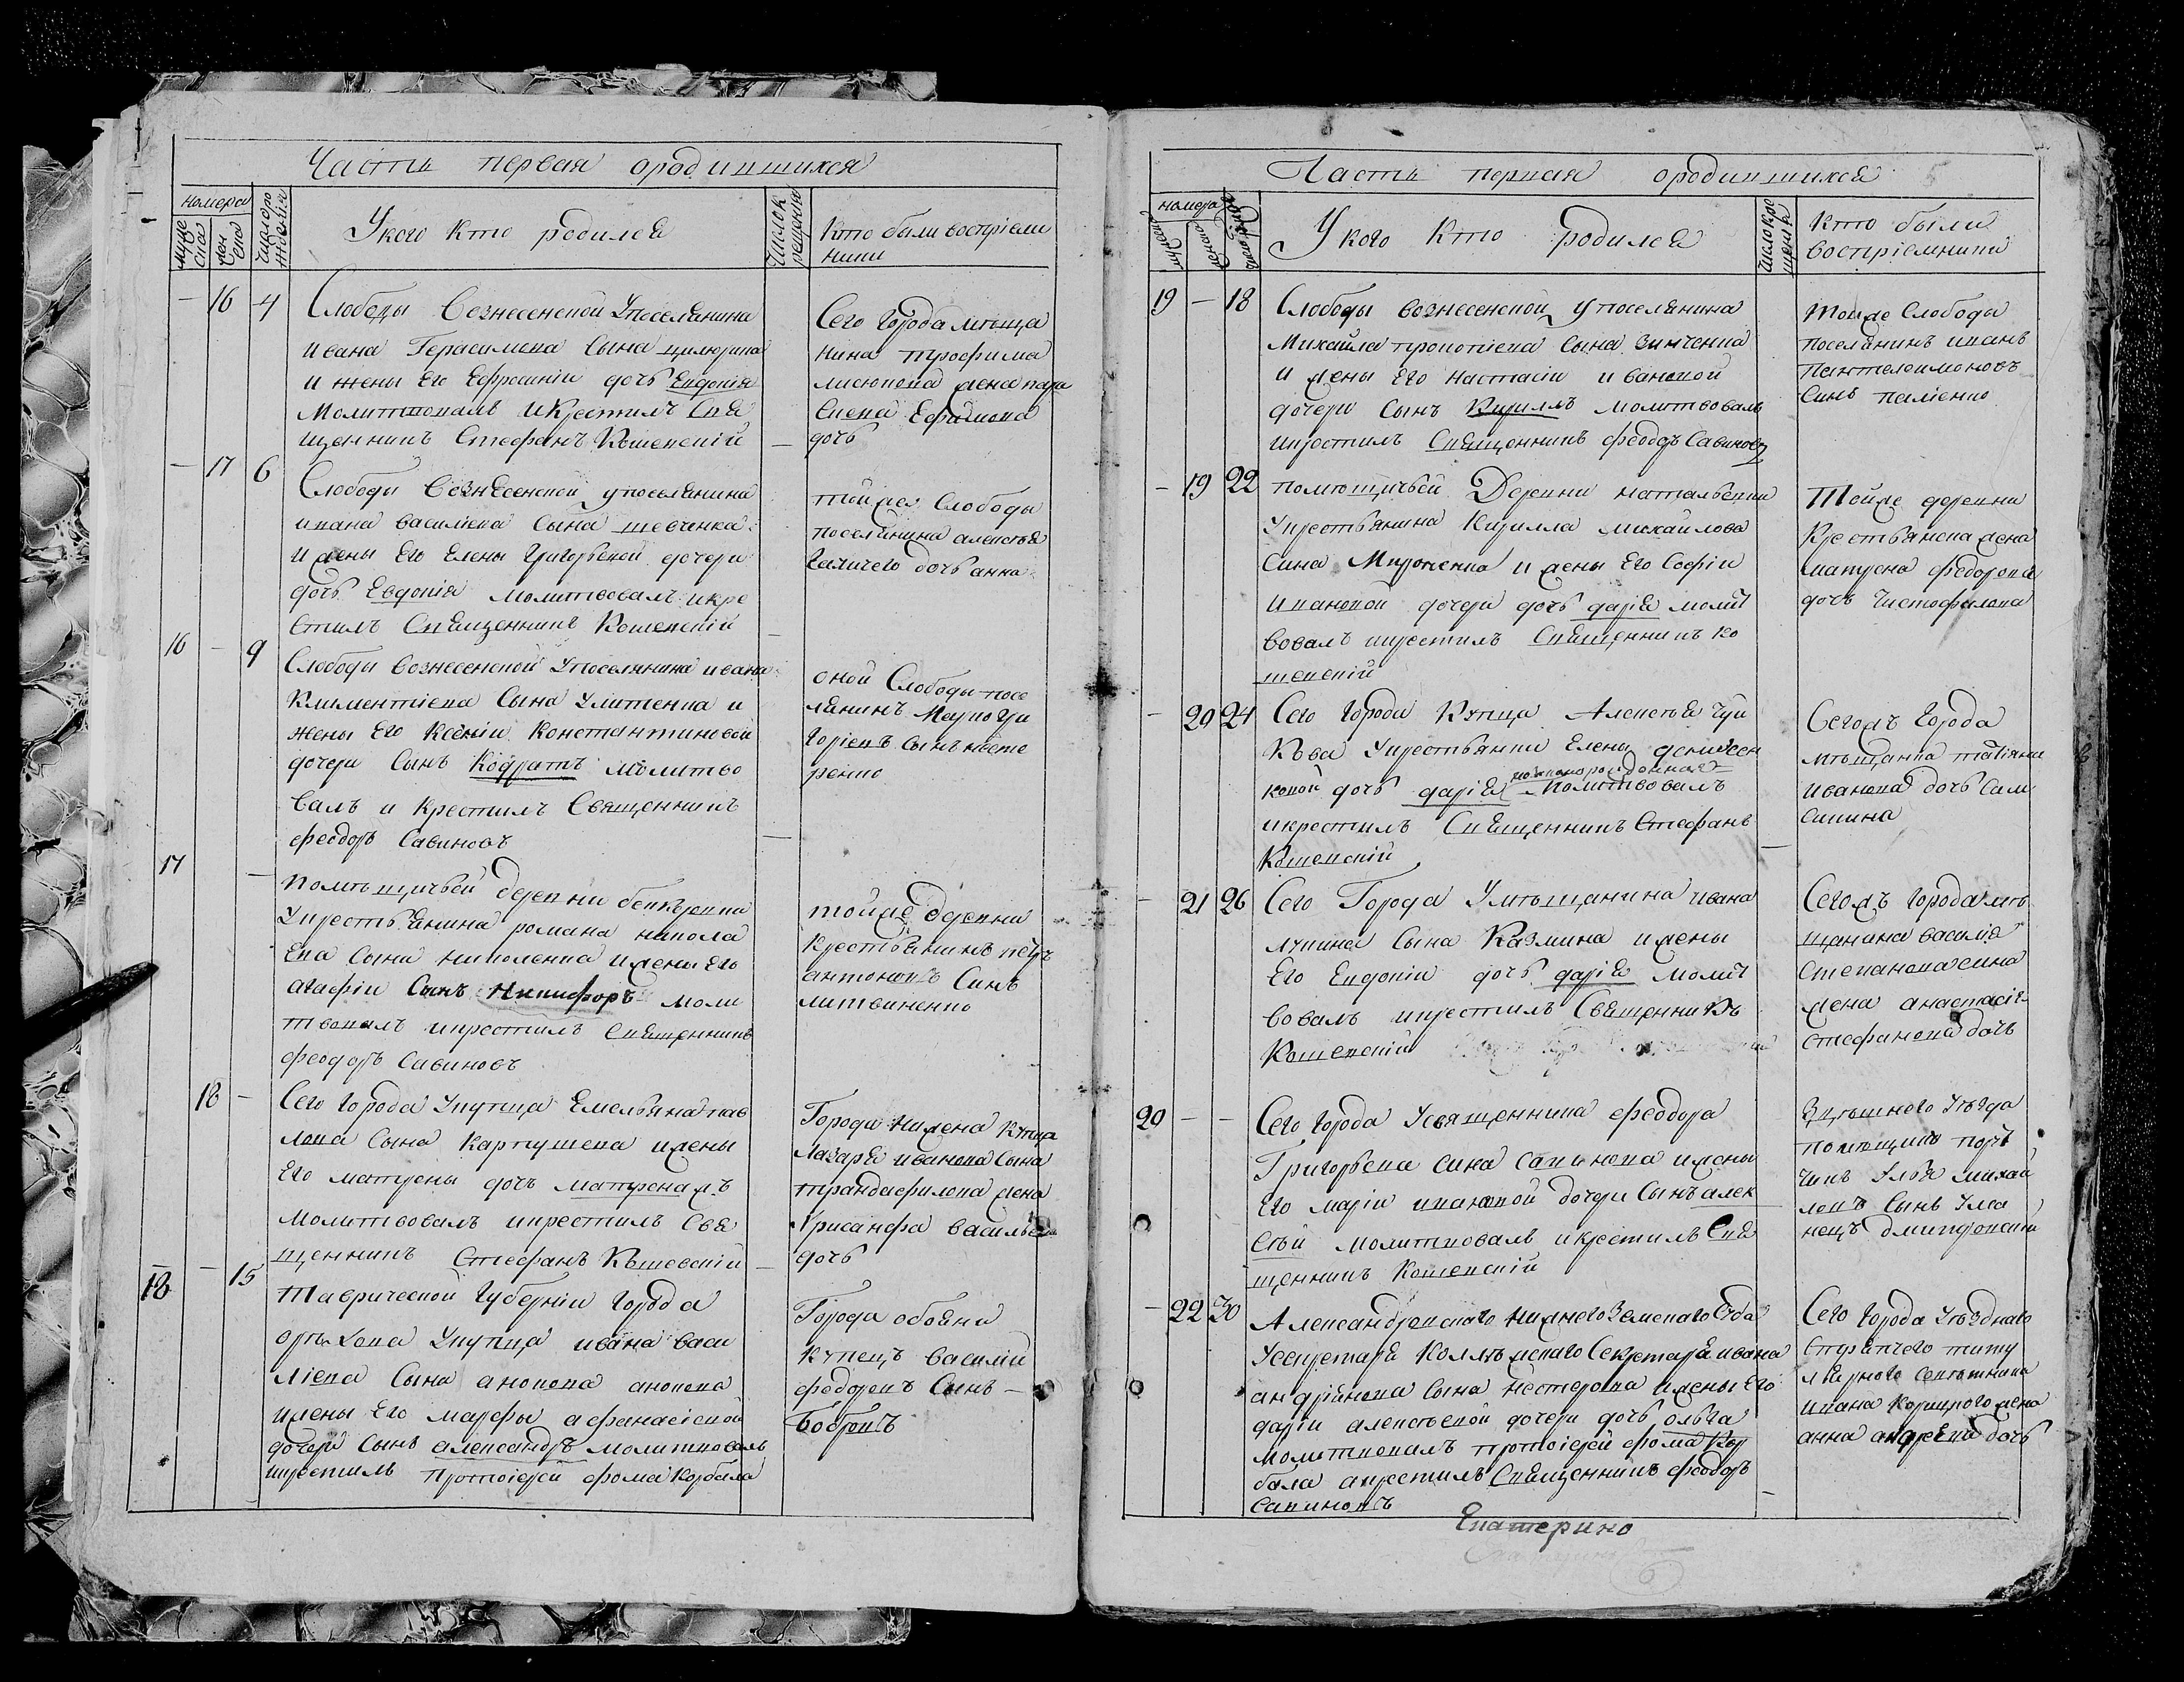 Часть первая ородившихся
номера
муже
ска
жен
ска
число ро
ждения
Укого кто родился
число к
рещения
кто были воспріем
ники
16 4
Слободы Вознесенской Упоселянина
ивана Герасимова Сына цилюрика
и жены Его Ефросиніи дочь Евдокія
Молитвовалъ икрестилъ Свя
щенникъ Стефанъ Кошевскій
Сего Города меща
нина трофима
жена пара
скева Ефимова
дочь
17 6
Слободы Вознесенской упоселянина
ивана васильева Сына шевченка
и жены Его Елены Григорьевой дочери
дочь Евдокія молитвовалъ икре
стилъ Священникъ Кошевскій
тойже Слободы
поселянина алексея
Галичего дочь анна
16 — 9
Слободы Вознесенской Упоселянина ивана
Климентіева Сына Улитенка и
жены Его Ксеніи Константиновой
дочери Сынъ Кодратъ Молитво
валъ и крестилъ Священникъ
феодоръ Савиновъ
оной Слободы посе
лянинъ Марко Гри
горіевъ Сынъ несте
ренко
17 —
помѣщичьей деревни
Укрестьянина романа никола
ева Сына николенка ижены Его
агафіи Сынъ Никифоръ моли
твовалъ икрестилъ Священникъ
феодоръ Савиновъ
тойже деревни
Крестьянинъ петръ
антоновъ Сынъ
литвиненко
18 —
Сего Города Укупца Емельяна пав
лова Сына Карпушева ижены
Его матрены дочь матрена жъ
Молитвовалъ икрестилъ Свя
щенникъ Стефанъ Кошевскій
Города Нижена Купца
Лазаря иванова Сына
трандафилова жена
Хрисанфа васильева
дочь
18 — 15
Таврической Губерніи Города
орѣхова Укупца ивана васи
ліева Сына анокова анокова
ижены Его марфы афанасіевой
дочери Сынъ александръ молитвовалъ
икрестилъ протоіерей фома Корбала
Города обояни
Купецъ василій
федоровъ Сынъ
Бобровъ
Часть первая ородившихся
номера
мужеска
женска
число рожде
Укого кто родился
число кре
щения
кто были
воспріемники
19 — 18
Слободы вознесенской упоселянина
Михаила прокопіева Сына Зинченка
и жены Его настасіи ивановой
дочери Сынъ Кириллъ молитвовалъ
икрестилъ Священникъ феодоръ Савиновъ
тойже Слободы
поселянинъ иванъ
пантелеимоновъ
Синъ паліенко
— 19 22
помѣщичьей Деревни натальевки
Укрестьянина Кирилла михайлова
Сина Мироненка и жены Его Софіи
ивановой дочери дочь дарія молит
вовалъ икрестилъ Священникъ ко
шевскій
Тойже деревни
Крестьянска жена
матрена федорова
дочь Чистофалова
— 20 24
Сего Города Купца Алексѣя Чуй
Кова Укрестьянки Елены денисен
ковой дочь дарія незаконорожденная Молитвовалъ
икрестилъ Священникъ Стефанъ
Кошевскій
Сегожъ Города
мѣщанка татіяна
иванова дочь Сам
сикина
— 21 26
Сего Города Умѣщанина ивана
лукина Сына Казмина ижены
Его Евдокіи дочь дарія молит
вовалъ икрестилъ Священникъ
Кошевскій
Сегожъ Города мѣ
щанина василія
Степанова сина
жена анастасія
стефанова дочь
20 — —
Сего Города Усвященника феодора
Григорьева сина Савинова ижены
Его маріи ивановой дочери Сынъ алек
сѣй молитвовалъ икрестилъ Свя
щенникъ Кошевскій
Здѣшнего Уѣзда
помѣщикъ пору
чикъ Илья михай
ловъ Сынъ Ума
нецъ дмитровскій
— 22 30
Александровскаго нижнего Земскаго Суда
Усекретаря Коллѣжскаго Секретаря ивана
андрійнова Сына нестерова ижены Его
даріи алексѣевой дочери дочь ольга
молитвовалъ протоіерей фома Кор
бала акрестилъ Священникъ феодоръ
Савиновъ
Сего Города Уѣзднаго
Стряпчего титу
лярного Совѣтника
ивана жена
анна андреева дочь
Екатерино
6